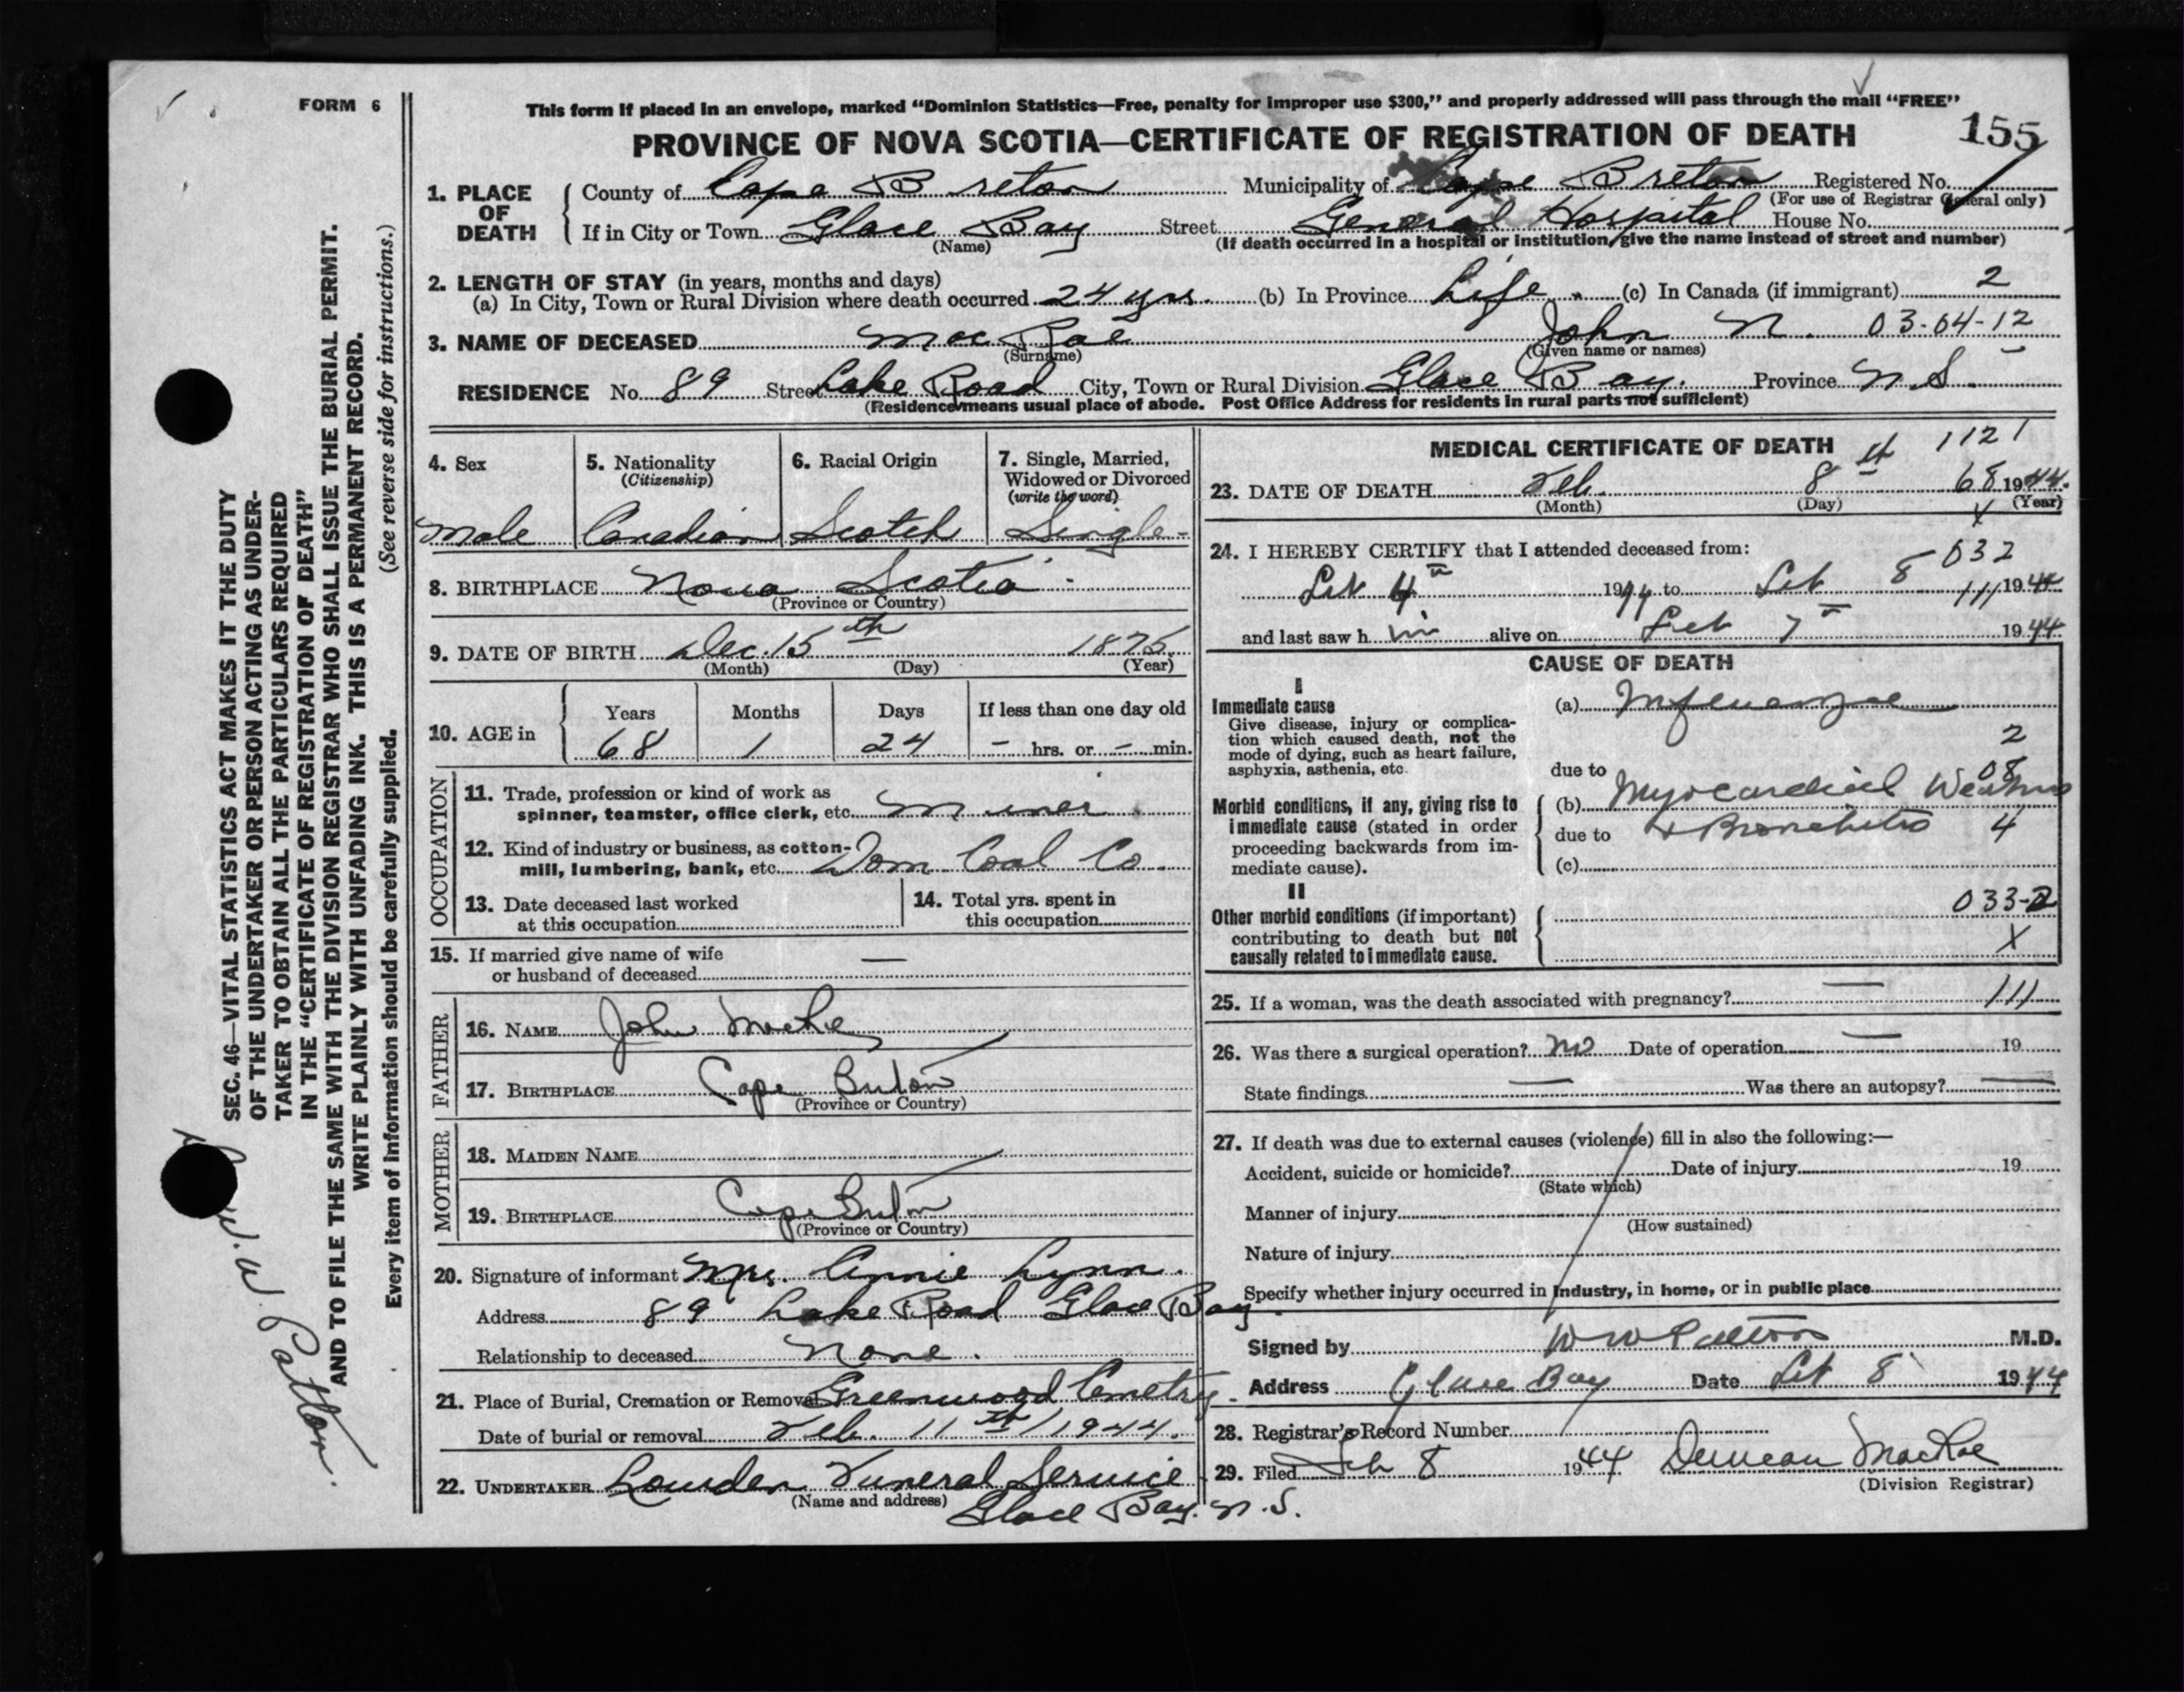 FORM 6
This form if placed in an envelope, marked “Dominion Statistics—Free, penalty for improper use $300,” and properly addressed will pass through the mail “FREE”
PROVINCE OF NOVA SCOTIA—CERTIFICATE OF REGISTRATION OF DEATH
155
1. PLACE OF DEATH
County of Cape Breton Municipality of Cape Breton Registered No.
(For use of Registrar General only)
If in City or Town Glace Bay Street General Hospital House No.
(Name) (If death occurred in a hospital or institution, give the name instead of street and number)
2. LENGTH OF STAY (in years, months and days)
(a) In City, Town or Rural Division where death occurred 24 yrs. (b) In Province Life (c) In Canada (if immigrant) 2
3. NAME OF DECEASED Mac Rae John N. 03-04-12
(Surname) (Given name or names)
RESIDENCE No. 89 Street Lake Road City, Town or Rural Division Glace Bay. Province N.S.
(Residence means usual place of abode. Post Office Address for residents in rural parts not sufficient)
4. Sex
Male
5. Nationality
(Citizenship)
Canadian
6. Racial Origin
Scotch
7. Single, Married,
Widowed or Divorced
(write the word)
Single
8. BIRTHPLACE Nova Scotia
(Province or Country)
9. DATE OF BIRTH Dec. 15th 1875
(Month) (Day) (Year)
10. AGE in
Years Months Days If less than one day old
68 1 24 - hrs. or - min.
OCCUPATION
11. Trade, profession or kind of work as
spinner, teamster, office clerk, etc. Miner
12. Kind of industry or business, as cotton-
mill, lumbering, bank, etc. Dom Coal Co.
13. Date deceased last worked
at this occupation
14. Total yrs. spent in
this occupation
15. If married give name of wife
or husband of deceased —
FATHER
16. NAME John
17. BIRTHPLACE Cape Breton
(Province or Country)
MOTHER
18. MAIDEN NAME
19. BIRTHPLACE Cape Breton
(Province or Country)
20. Signature of informant Mrs. Annie Lynn.
Address 89 Lake Road Glace Bay.
Relationship to deceased None.
21. Place of Burial, Cremation or Removal Greenwood Cemetry.
Date of burial or removal Feb. 11th 1944.
22. UNDERTAKER Lowden Funeral Service
(Name and address) Glace Bay. N.S.
MEDICAL CERTIFICATE OF DEATH
1121
23. DATE OF DEATH Feb. 8th 68 1944.
(Month) (Day) (Year)
24. I HEREBY CERTIFY that I attended deceased from:
032
Feb 4th 1944 to Feb 8 111 1944
and last saw him alive on Feb 7th 1944
CAUSE OF DEATH
I
Immediate cause
Give disease, injury or complica-
tion which caused death, not the
mode of dying, such as heart failure,
asphyxia, asthenia, etc.
(a) Influenzae
2
due to
08
Morbid conditions, if any, giving rise to
immediate cause (stated in order
proceeding backwards from im-
mediate cause).
(b) Myocardial Weakness
due to + Bronchitis 4
(c)
II
Other morbid conditions (if important)
contributing to death but not
causally related to immediate cause.
033-2
X
25. If a woman, was the death associated with pregnancy? — 111
26. Was there a surgical operation? no Date of operation — 19
State findings — Was there an autopsy? —
27. If death was due to external causes (violence) fill in also the following:—
Accident, suicide or homicide? Date of injury 19
(State which)
Manner of injury
(How sustained)
Nature of injury
Specify whether injury occurred in industry, in home, or in public place
Signed by W W Patton M.D.
Address Glace Bay Date Feb 8 1944
28. Registrar's Record Number
29. Filed Feb 8 1944 Duncan MacRae
(Division Registrar)
SEC. 46—VITAL STATISTICS ACT MAKES IT THE DUTY
OF THE UNDERTAKER OR PERSON ACTING AS UNDER-
TAKER TO OBTAIN ALL THE PARTICULARS REQUIRED
IN THE “CERTIFICATE OF REGISTRATION OF DEATH”
AND TO FILE THE SAME WITH THE DIVISION REGISTRAR WHO SHALL ISSUE THE BURIAL PERMIT.
WRITE PLAINLY WITH UNFADING INK. THIS IS A PERMANENT RECORD.
(See reverse side for instructions.)
Every item of information should be carefully supplied.
W. W. Patton.